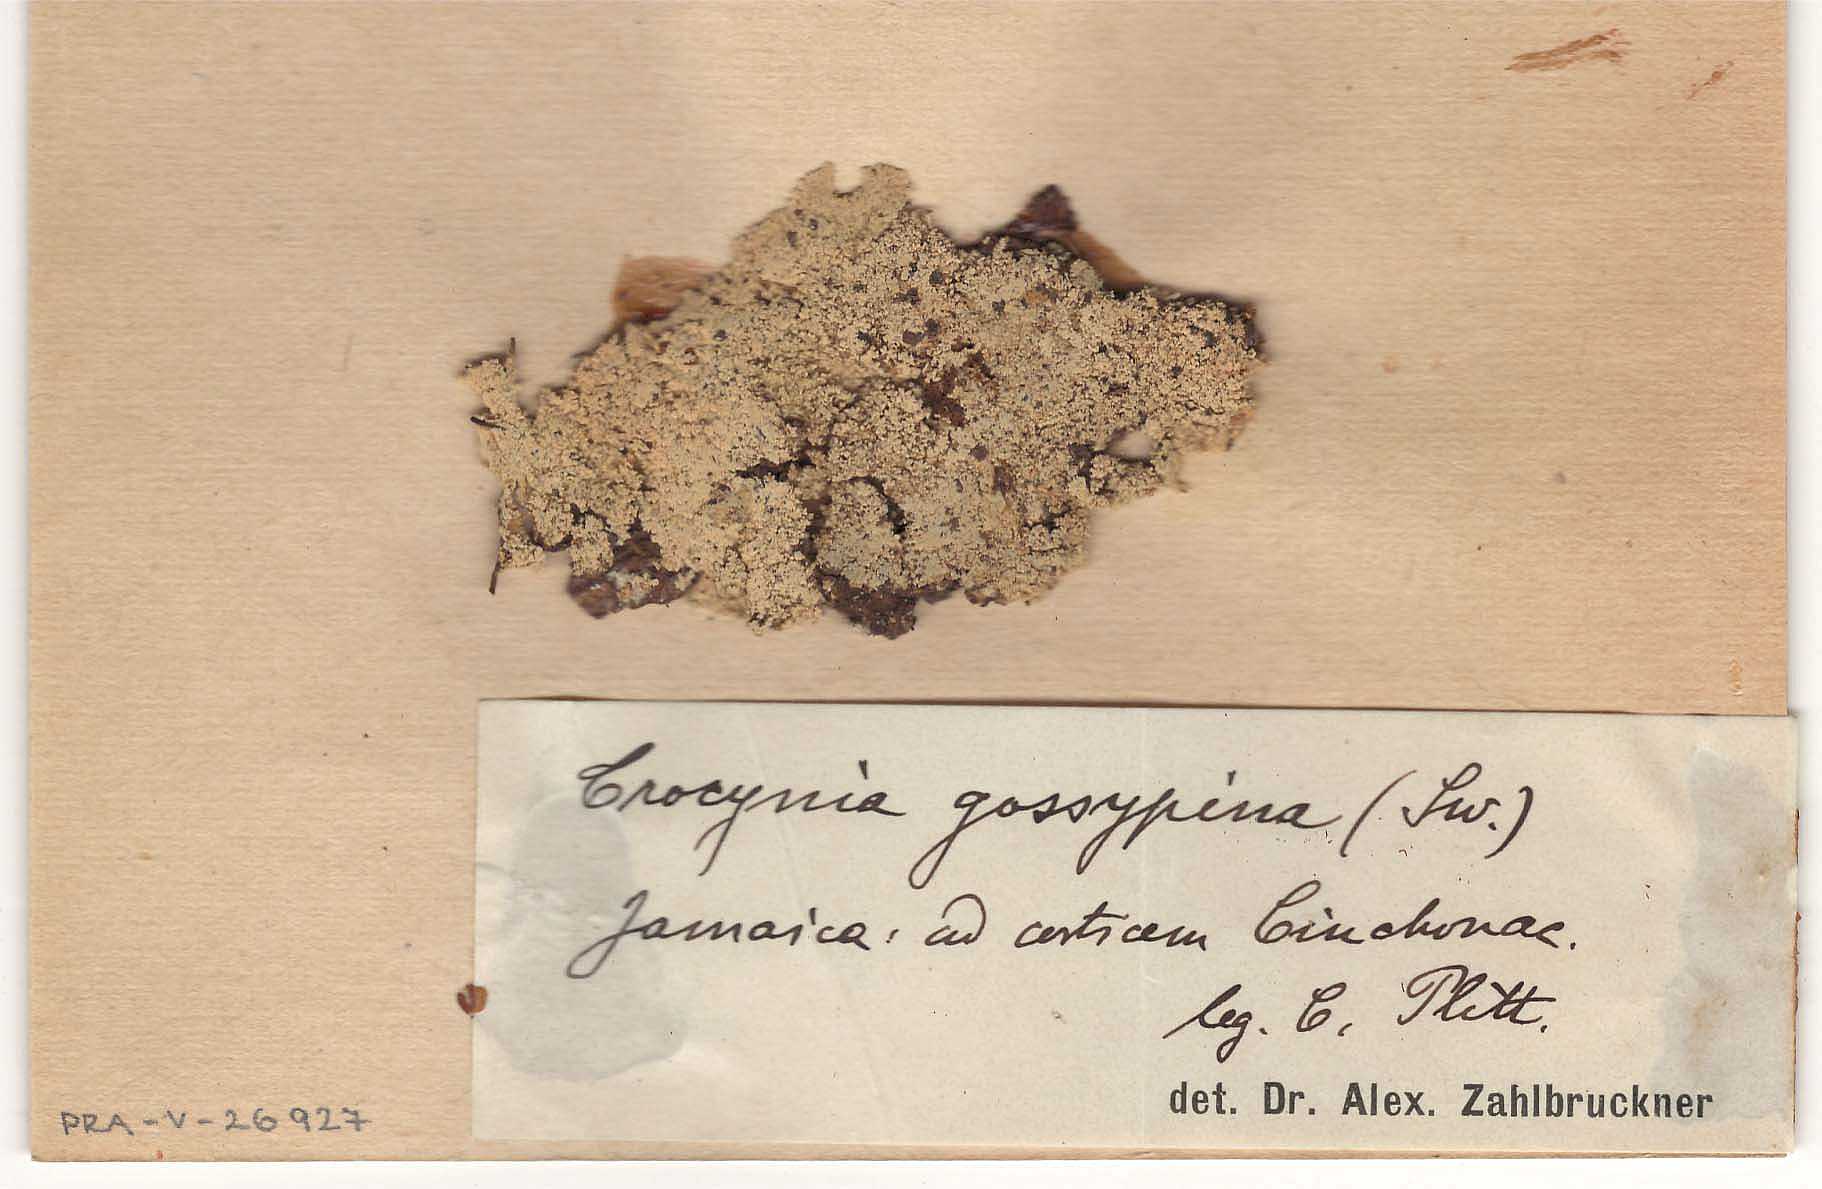 Crocynia gossypina (Sw.)
Jamaica: ad corticem Cinchonae.
leg. C. Plitt.
det. Dr. Alex. Zahlbruckner
PRA-V-26927